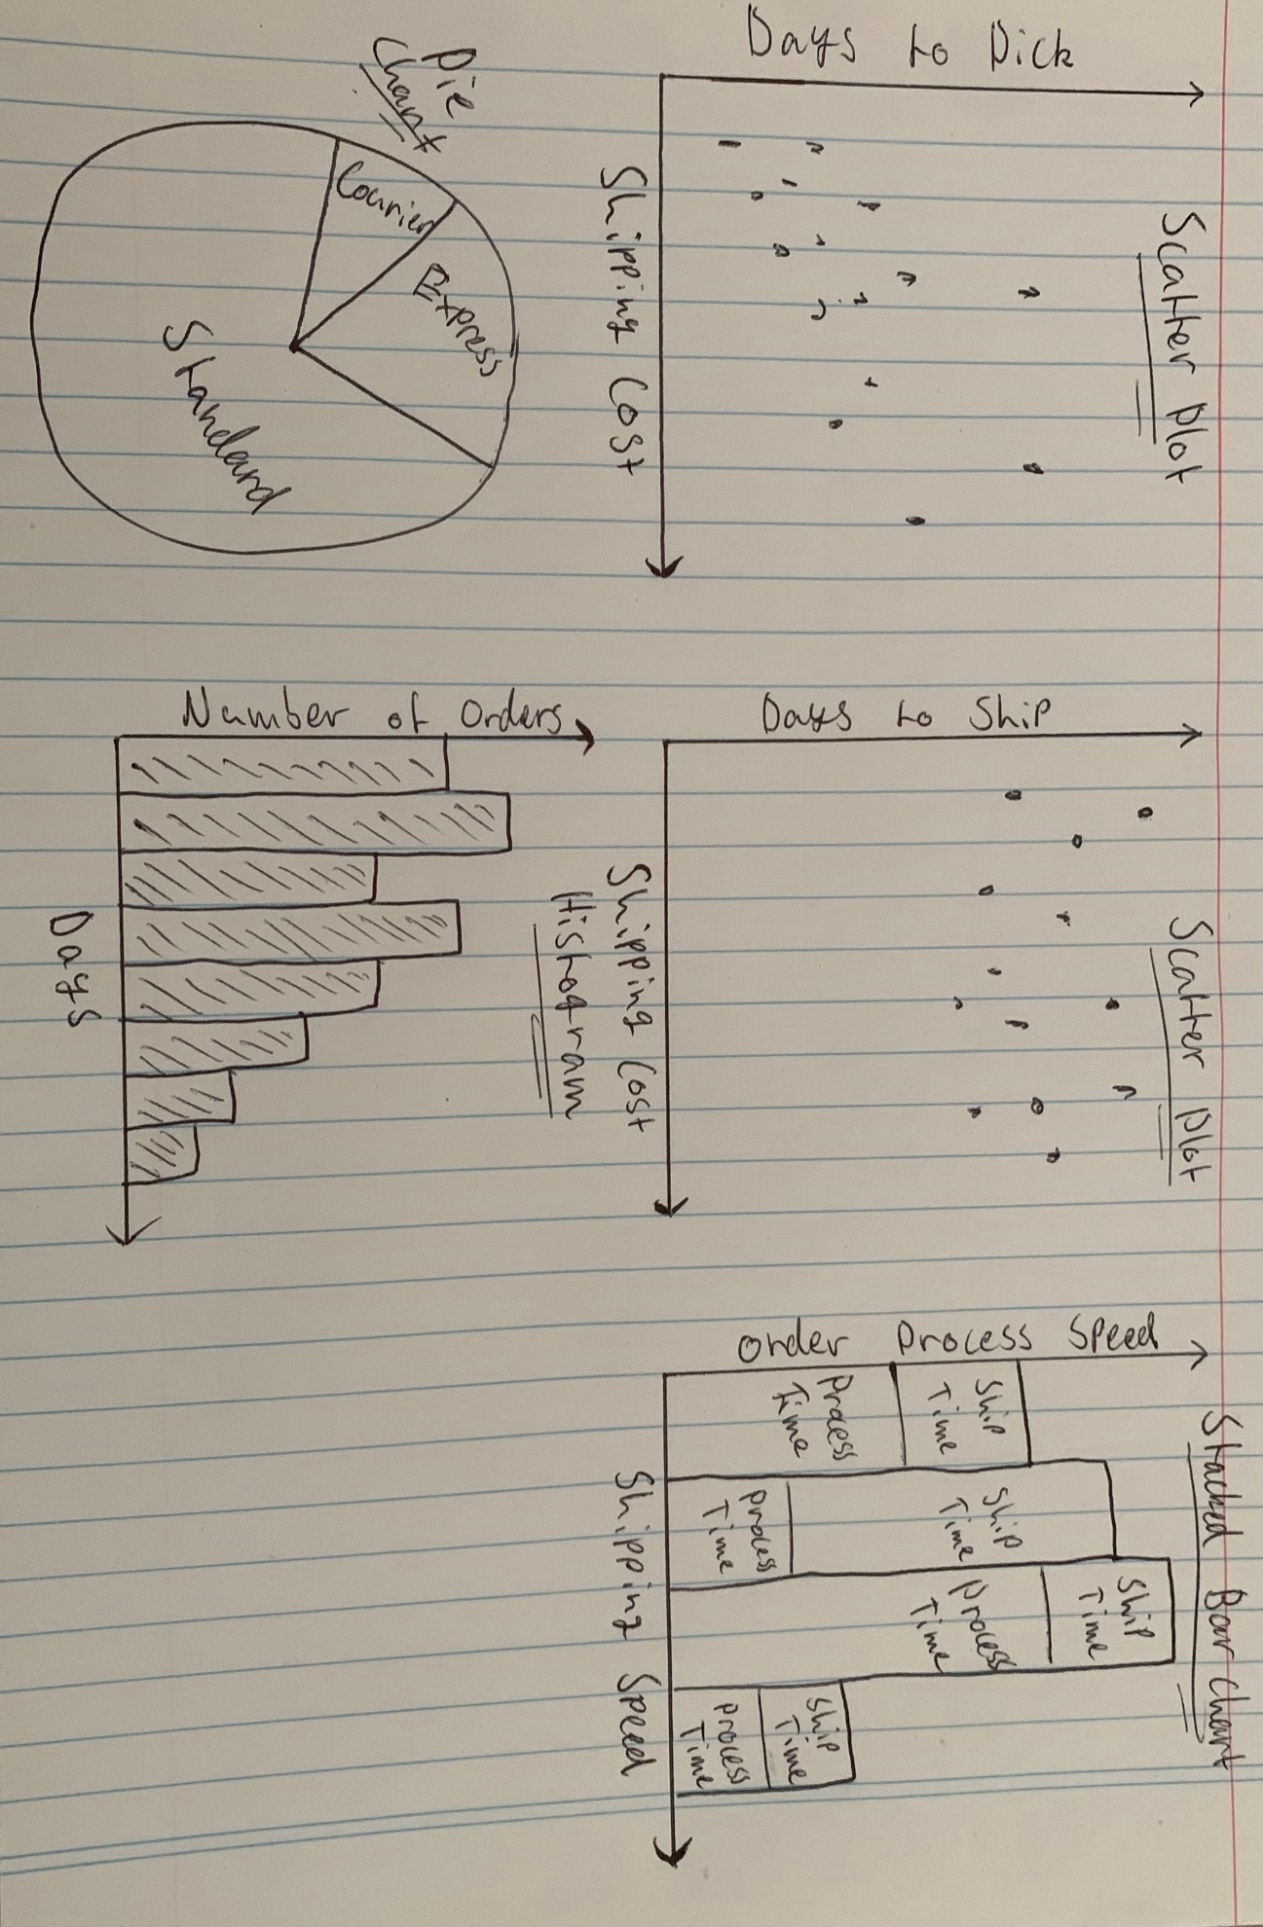 Scatter Plot
Days to Pick
Shipping Cost
Scatter Plot
Days to Ship
Shipping Cost
Stacked Bar Chart
Order Process Speed
Ship
Time
Process
Time
Ship
Time
Process
Time
Ship
Time
Process
Time
Ship
Time
Process
Time
Shipping Speed
Pie
Chart
Courier
Express
Standard
Histogram
Number of Orders
Days